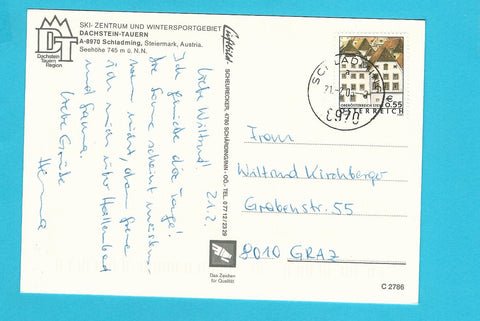 SKI-ZENTRUM UND WINTERSPORTGEBIET
DACHSTEIN-TAUERN
A-8970 Schladming, Steiermark, Austria.
Seehöhe 745 m ü. N.N.
DT
Dachstein
Tauern
Region
21.2.
Liebe Waltraud!
Ich genieße die Tage!
Die Sonne scheint meistens
zwar nicht, dann freue
ich mich über Hallenbad
und Sauna.
Liebe Grüße
SCHEURECKER, 4780 SCHÄRDING/INN - OÖ., TEL. 0 77 12/23 29
Das Zeichen
für Qualität
SCHLADMING
8970
0.55
ÖSTERREICH
Frau
Waltraud Kirchberger
Grabenstr. 55
8010 GRAZ
C 2786